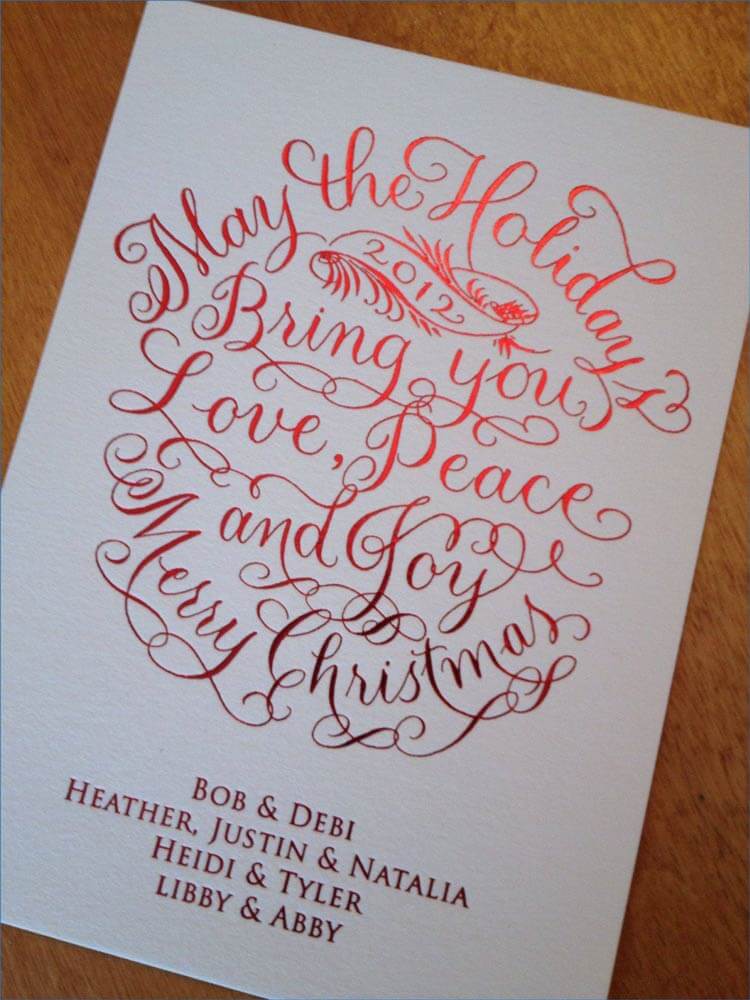 May the Holidays
2012
Bring you
Love, Peace
and Joy
Merry Christmas
BOB & DEBI
HEATHER, JUSTIN & NATALIA
HEIDI & TYLER
LIBBY & ABBY